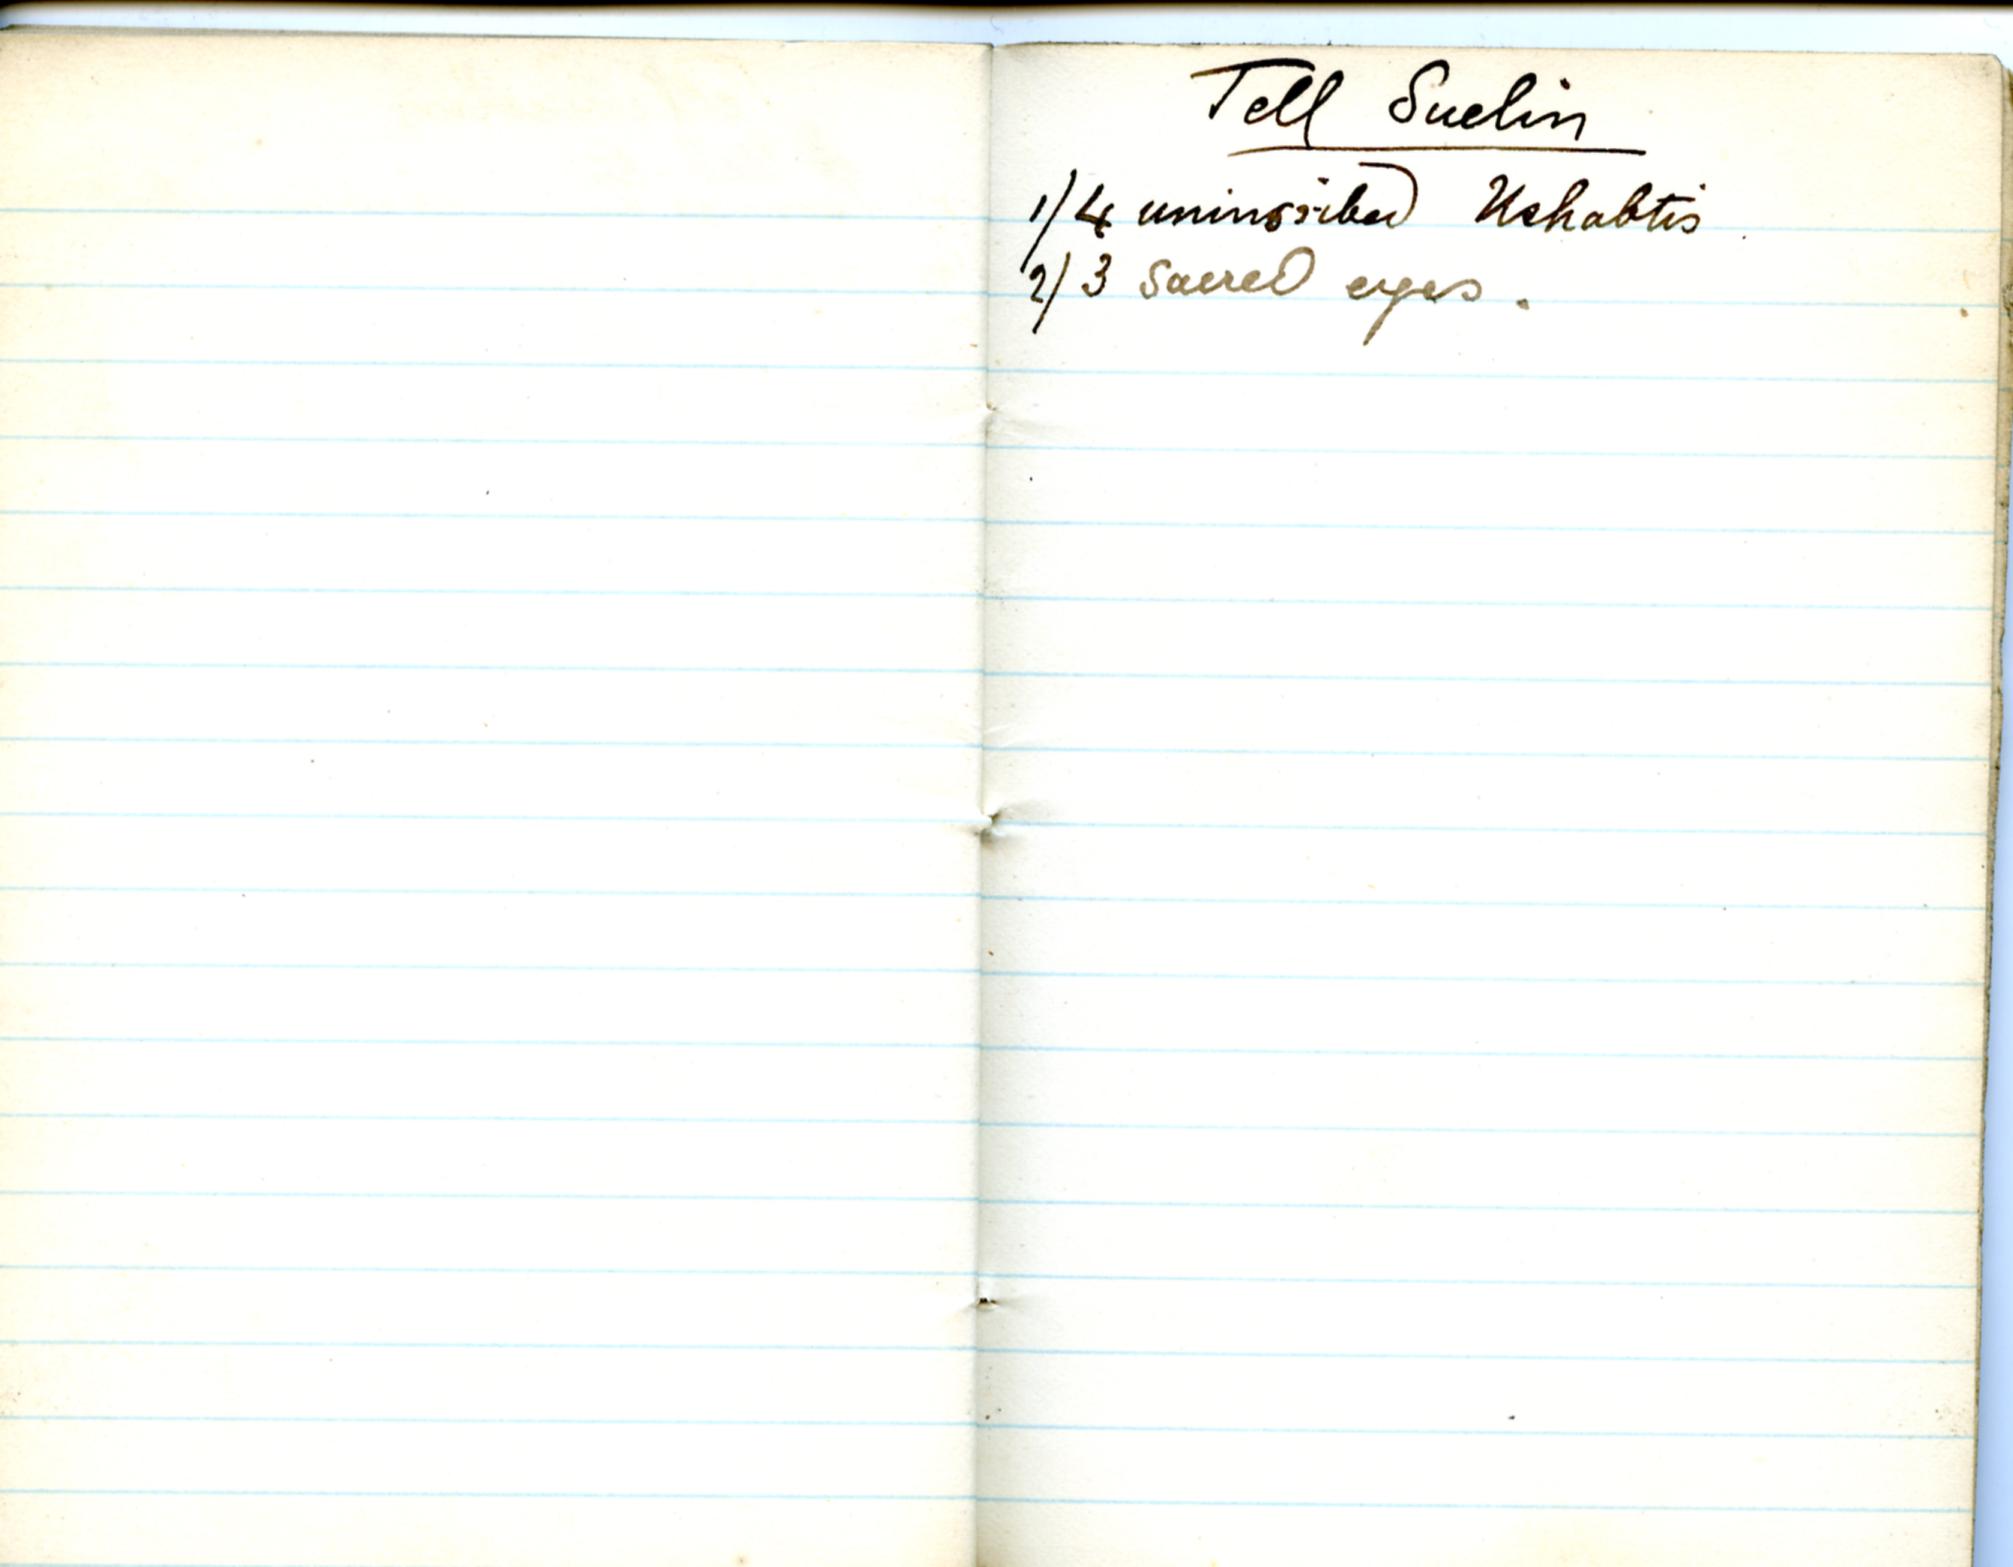 Tell Suelin
1/ 4 uninscribed Ushabtis
2/ 3 Sacred eyes.